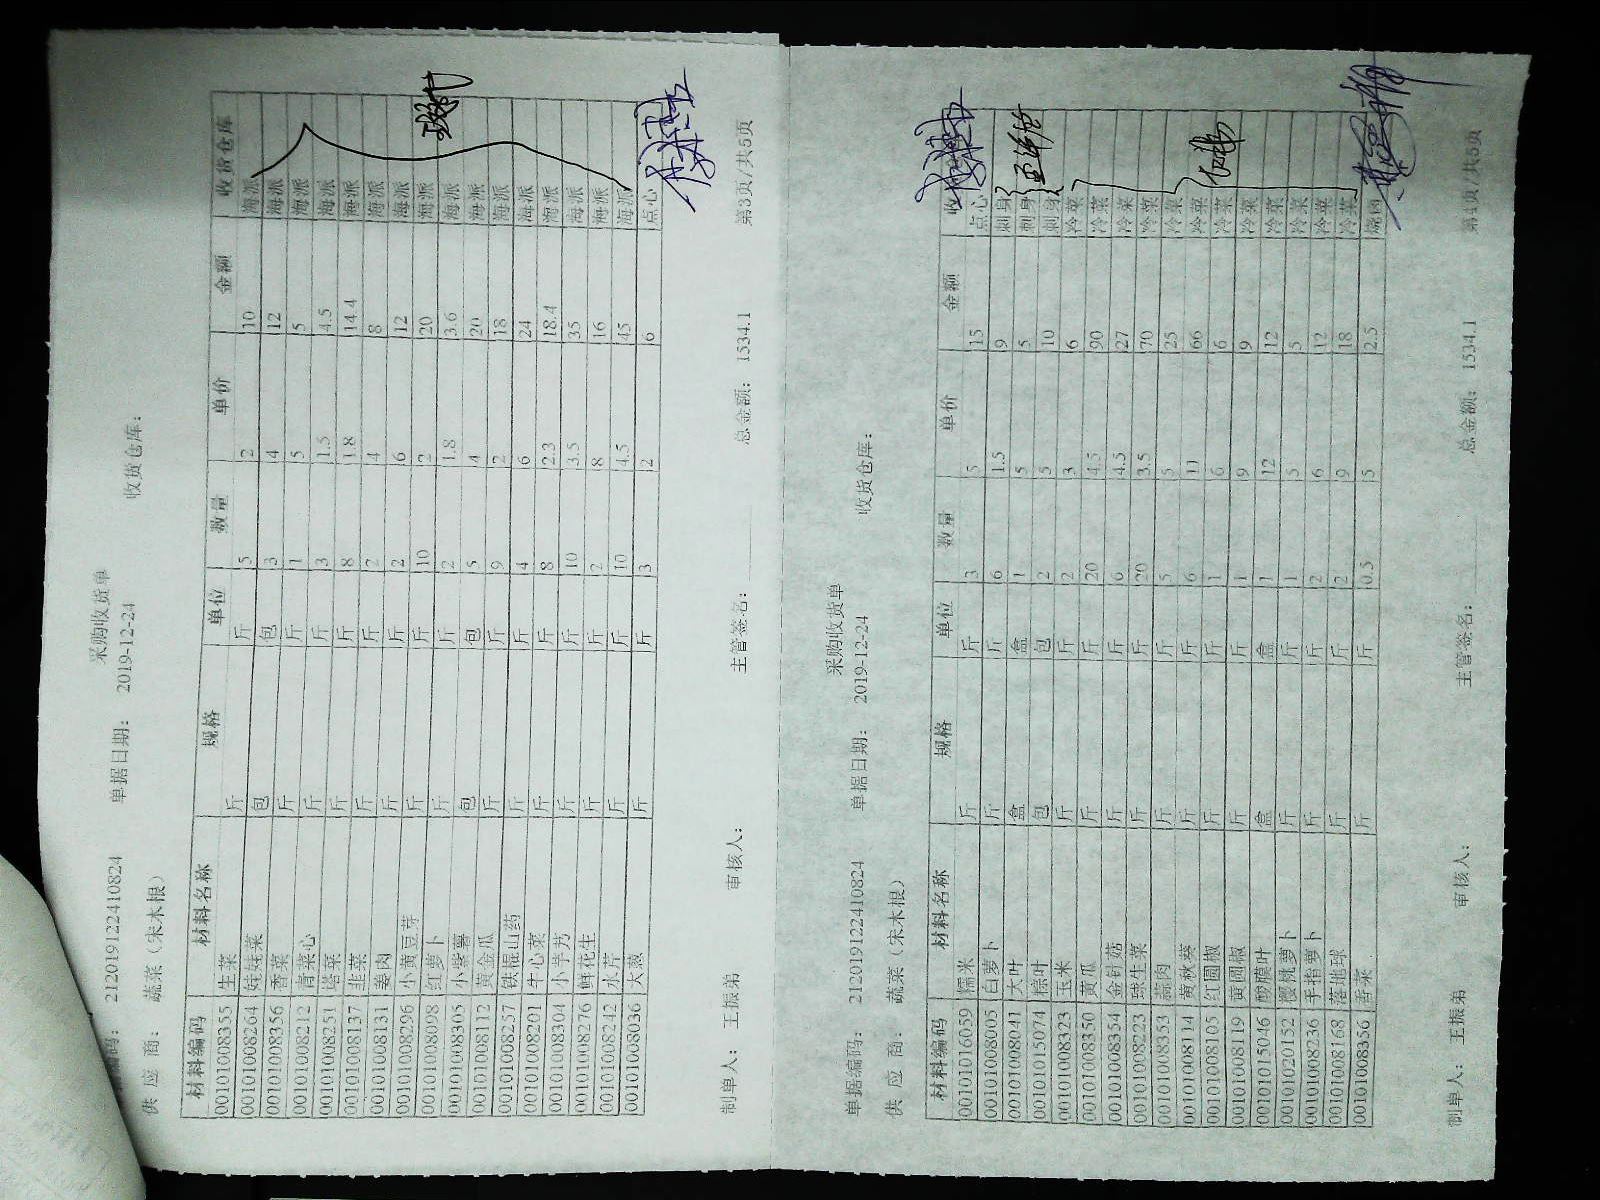 采购收货单
编码： 212019122410824 单据日期： 2019-12-24 收货仓库：
供 应 商： 蔬菜（宋木根）
材料编码 材料名称 规格 单位 数量 单价 金额 收货仓库
00101008355 生菜 斤 斤 5 2 10 海派
00101008264 娃娃菜 包 包 3 4 12 海派
00101008356 香菜 斤 斤 1 5 5 海派
00101008212 青菜心 斤 斤 3 1.5 4.5 海派
00101008251 塔菜 斤 斤 8 1.8 14.4 海派
00101008137 韭菜 斤 斤 2 4 8 海派
00101008131 姜肉 斤 斤 2 6 12 海派
00101008296 小黄豆芽 斤 斤 10 2 20 海派
00101008098 红萝卜 斤 斤 2 1.8 3.6 海派
00101008305 小紫薯 包 包 5 4 20 海派
00101008112 黄金瓜 斤 斤 9 2 18 海派
00101008237 铁棍山药 斤 斤 4 6 24 海派
00101008201 牛心菜 斤 斤 8 2.3 18.4 海派
00101008304 小芋艿 斤 斤 10 3.5 35 海派
00101008276 鲜花生 斤 斤 2 8 16 海派
00101008242 水芹 斤 斤 10 4.5 45 海派
00101008036 大葱 斤 斤 3 2 6 点心
总金额： 1534.1 第3页/共5页
制单人： 王振弟 审核人： 主管签名：
采购收货单
单据编码： 212019122410824 单据日期： 2019-12-24 收货仓库：
供 应 商： 蔬菜（宋木根）
材料编码 材料名称 规格 单位 数量 单价 金额 收
00101016059 糯米 斤 斤 3 5 15 点心
00101008005 白萝卜 斤 斤 6 1.5 9 刺身
00101008041 大叶 盒 盒 1 5 5 刺身
00101015074 粽叶 包 包 2 5 10 刺身
00101008323 玉米 斤 斤 2 3 6 冷菜
00101008350 黄瓜 斤 斤 20 4.5 90 冷菜
00101008354 金针菇 斤 斤 6 4.5 27 冷菜
00101008223 球生菜 斤 斤 20 3.5 70 冷菜
00101008353 蒜肉 斤 斤 5 5 25 冷菜
00101008114 黄秋葵 斤 斤 6 11 66 冷菜
00101008105 红圆椒 斤 斤 1 6 6 冷菜
00101008119 黄圆椒 斤 斤 1 9 9 冷菜
00101015046 酸膜叶 盒 盒 1 12 12 冷菜
00101020152 樱桃萝卜 斤 斤 1 5 5 冷菜
00101008236 手指萝卜 斤 斤 2 6 12 冷菜
00101008168 落地球 斤 斤 2 9 18 冷菜
00101008356 香菜 斤 斤 0.5 5 2.5 烧卤
总金额： 1534.1 第4页/共5页
制单人： 王振弟 审核人： 主管签名：